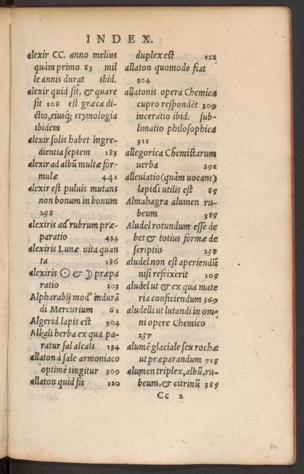 INDEX.
alexir CC. anno melius
quàm primo 83 mil
le annis durat ibid.
alexir quid sit, & quare
sit 108 est græca di-
ctio, eiusq; etymologia
ibidem
alexir solis habet ingre-
dientia septem 183
alexir ad albū multæ for-
mulæ 441
alexir est puluis mutans
non bonum in bonum
298
alexiris ad rubrum præ-
paratio 434
alexiris Lunæ uita quan
ta 186
alexiris ☉ & ☽ præpa
ratio 103
Alpharabij modꝰ indurā
di Mercurium 61
Algerid lapis est 304
Alkali herba ex qua pa-
ratur sal alcali 134
allaton à sale armoniaco
optimè tingitur 309
allaton quid sit 120
duplex est 128
allaton quomodo fiat
304
allatonis opera Chemica
cupro respondēt 309
inceratio ibid. sub-
limatio philosophica
311
allegorica Chemistarum
uerba 292
alleuiatio (quàm uocant)
lapidi utilis est 85
Almahagra alumen ru-
beum 385
Aludel rotundum esse de
bet & totius formæ de
scriptio 238
aludel non est aperiendū
nisi refrixerit 109
aludel ut & ex qua mate
ria conficiendum 569
aludelli ut lutandi in om-
ni opere Chemico
237
alumē glaciale seu rochæ
ut præparandum 715
alumen triplex, albū, ru-
beum, & citrinū 389
Cc 2